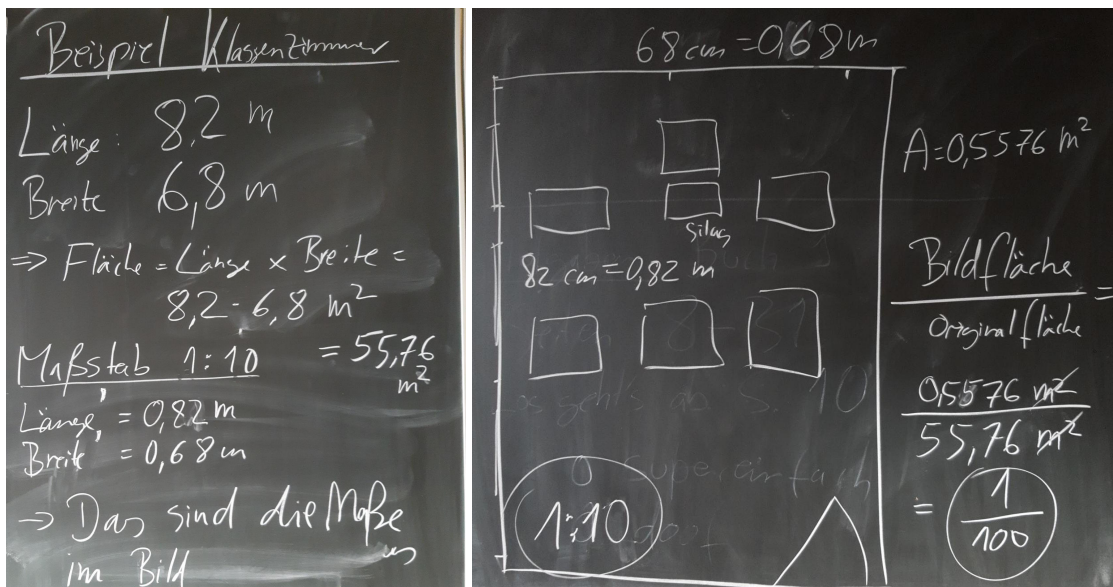 Beispiel Klassenzimmer
Länge: 8,2 m
Breite 6,8 m
=> Fläche = Länge x Breite =
8,2 · 6,8 m²
= 55,76
m²
Maßstab 1:10
Länge = 0,82 m
Breite = 0,68 m
→ Das sind die Maße
im Bild
68 cm = 0,68 m
Silas
82 cm = 0,82 m
1:10
A = 0,5576 m²
Bildfläche
Originalfläche
=
0,5576 m²
55,76 m²
= 1
100
los geht's ab S. 10
super einfach